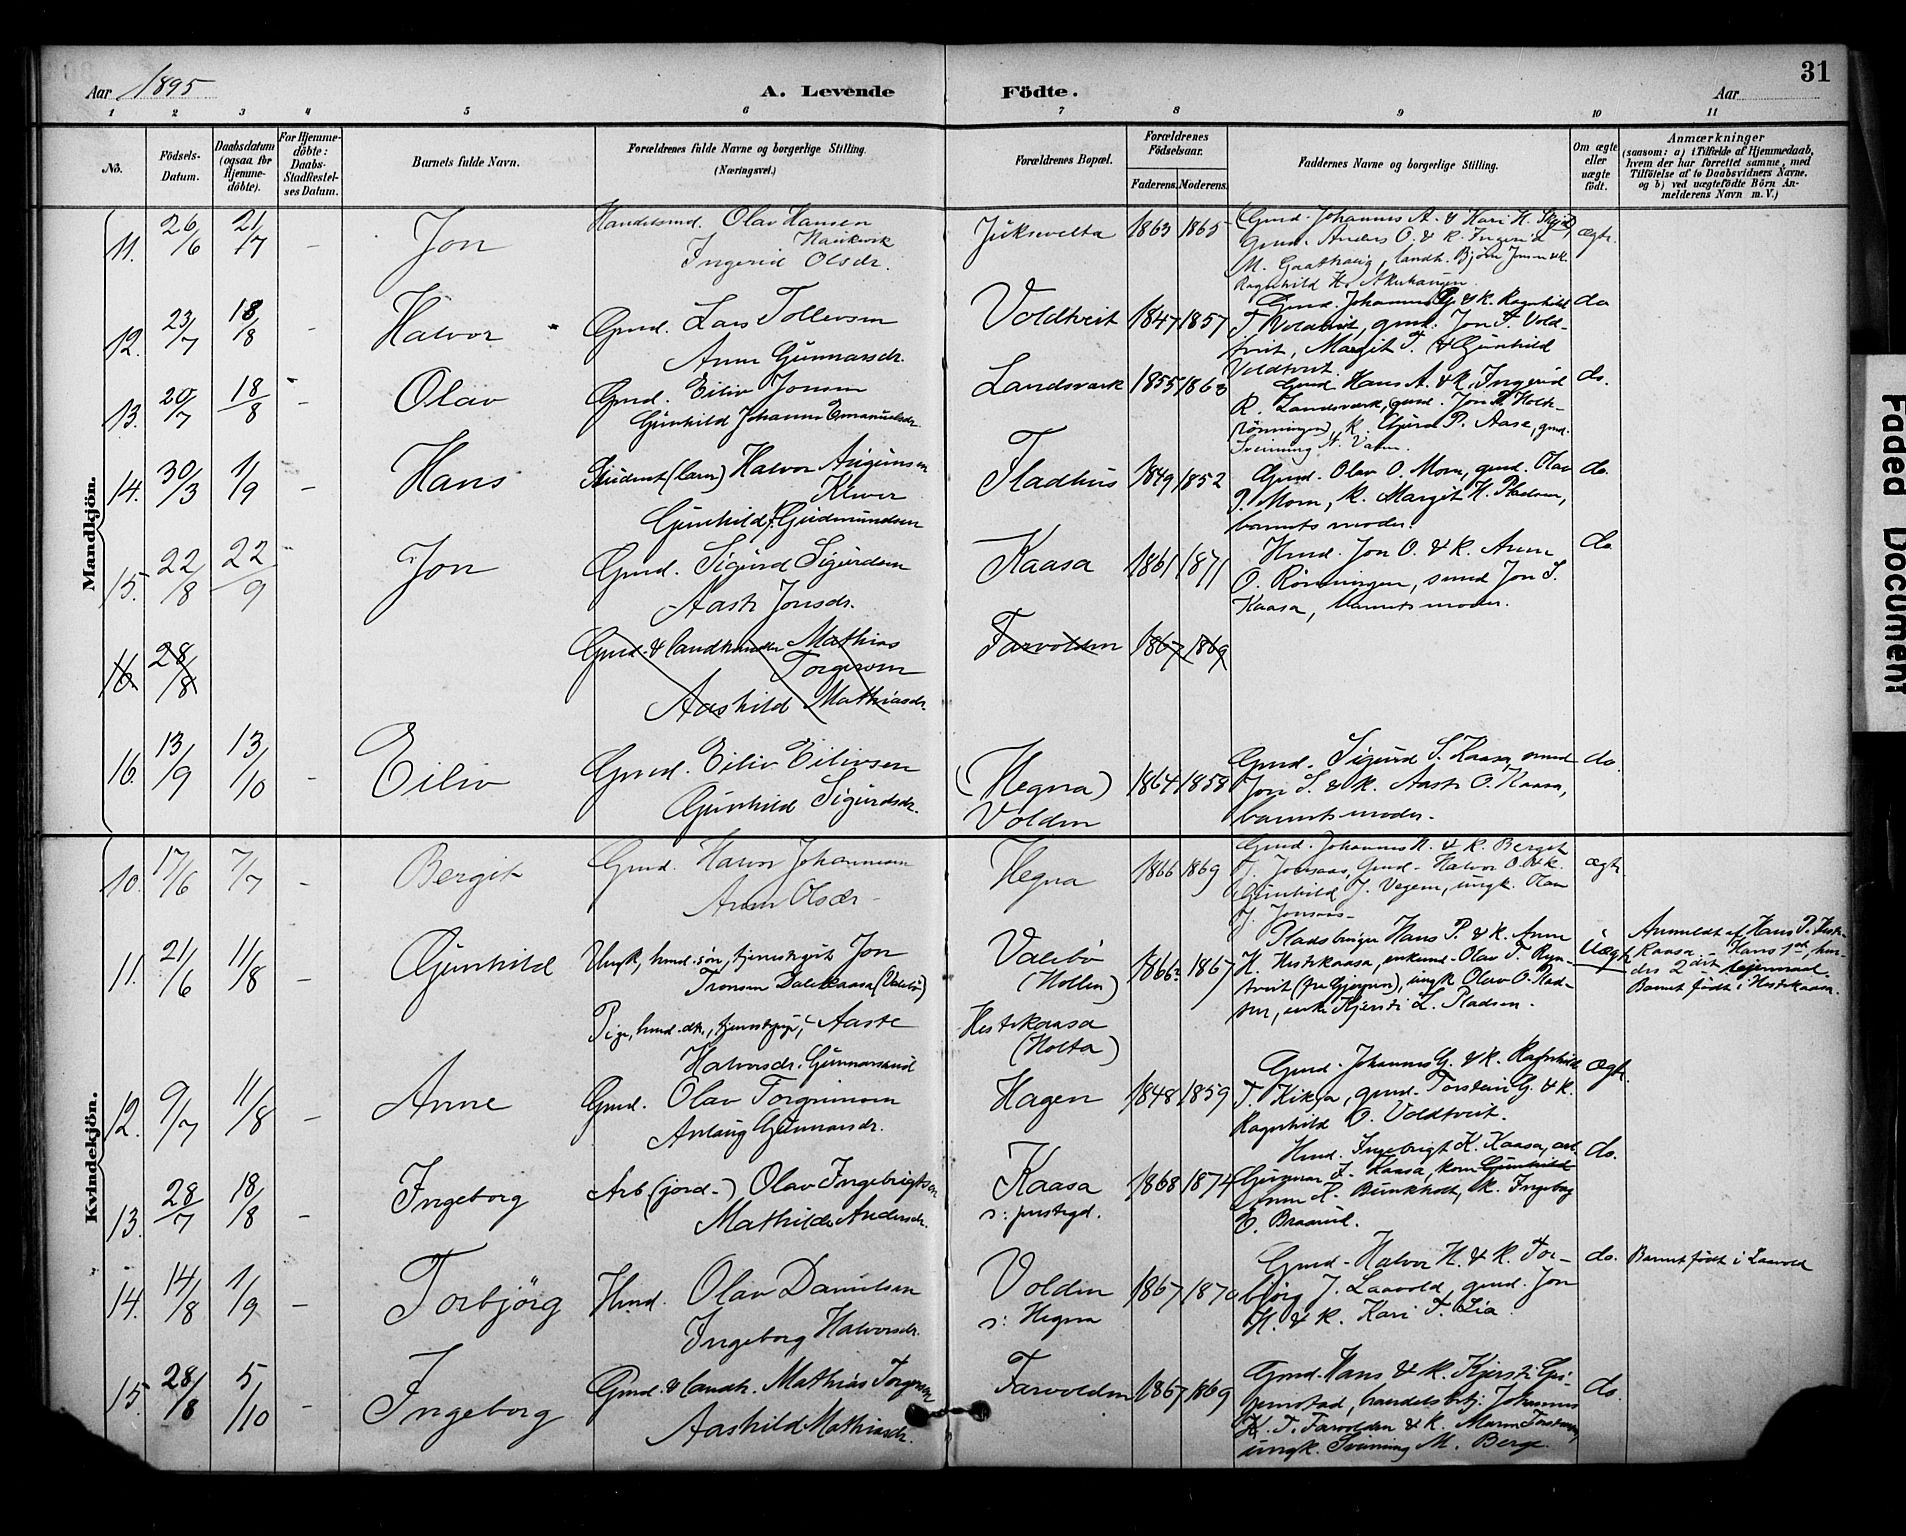 Aar 1895
A. Levende Födte.
Aar
31
1 2 3 4 5 6 7 8 9 10 11
No.
Födsels-Datum.
Daabsdatum (ogsaa for Hjemme-döbte).
For Hjemme-döbte: Daabs-Stadfæstel-ses Datum.
Barnets fulde Navn.
Forældrenes fulde Navne og borgerlige Stilling. (Næringsvei.)
Forældrenes Bopæl.
Forældrenes Födselsaar.
Faderens. Moderens.
Faddernes Navne og borgerlige Stilling.
Om ægte eller uægte födt.
Anmærkninger (saasom: a) i Tilfælde af Hjemmedaab, hvem der har forrettet samme, med Tilföielse af to Daabsvidners Navne. og b) ved uægtefödte Börn An-melderens Navn m. V.)
Mandkjön.
11. 26/6 21/7 - Jon
Handelsmd. Olav Hansen Haukvik
Ingerid Olsdr.
Juksevelta 1863 1865
Gmd. Johannes A. & Kari H.
Gmd. Anders O. & K. Ingerid
M. landh. Bjørn Jensen & K.
Ragnhild H.
ægte
12. 23/7 18/8 - Halvor
Gmd. Lars Tollevsen
Anne Gunnarsdr.
Voldtveit 1847 1857
Gmd. Johannes G. & K. Ragnhild
T. Voldtveit, gmd. Jon T. Vold-
tveit, Margit T. & Gunhild
Voldtveit.
do
13. 20/7 18/8 - Olav
Gmd. Eiliv Jonsen
Gunhild Johanne Emanuelsdr.
Landsværk 1855 1863
Gmd. Hans A. & K. Ingerid
R. Landsværk, gmd. Jon P. Holte-
(Rönningen), K. P. Aase, gmd.
Svenning A.
do.
14. 30/3 1/9 - Hans
Student (lærer) Halvor
Gunhild Gudmundsen
Fladhus 1849 1852
Gmd. Olav O. Moen, gmd. Olav
P. Moen, K. Margit H. Pladsen,
barnets moder.
do.
15. 22/8 22/9 Jon
Gmd. Sigurd Sigurdsen
Aaste Jonsdr.
Kaasa 1861 1871
Hmd. Jon O. & K. Anne
O. Rönningen, smed Jon S.
Kaasa, barnets moder.
do
16 28/8
Gmd. & landhandler Mathias
Torgersen
Aashild Mathiasdr.
Farvolden 1867 1869
16. 13/9 13/10 - Eiliv
Gmd. Eiliv Eilivsen
Gunhild Sigurdsdr.
(Hegna)
Volden 1864 1858
Gmd. Sigurd S. Kaasa, smed
Jon S. & K. Aaste O. Kaasa,
barnets moder.
do.
Kvindekjön.
10. 17/6 7/7 - Bergit
Gmd. Halvor Johannesen
Anne Olsdr.
Hegna 1866 1869
Gmd. Johannes H. & K. Bergit
J. Jonsaas, Gmd. Halvor O. & K.
Gunhild J. Vegem, ungk. Olav
J. Jonsaas-
ægte
11. 21/6 11/8 - Gunhild
Ungk, hmd. sön, tjenestegut Jon
Tronsen Dalekaasa (Valebö)
Pige, hmd. dtr., tjenestepige, Aaste
Halvorsdr. Gunnarsund
Valebö
(Hollen)
Hestekaasa
(Holta)
1866? 1867
Pladsbruger Hans P. & K. Anne
H. Hestekaasa, enkemd. Olav T.
tveit (fra Gjerpen), ungk Olav O. Plad-
sen, enke Kjersti L. Pladsen.
Uægte
Anmeldt af Hans P. Heste-
Kaasa. Hans 1ste, hen-
des 2det leiermaal.
Barnet födt i Hestekaasa.
12. 9/7 11/8 - Anne
Gmd. Olav Torgrimsen
Anlaug Gunnarsdr.
Hagen 1848 1859
Gmd. Johannes G. & K. Ragnhild
T. Kikja, gmd. Torstein G. & K.
Ragnhild O. Voldtveit.
ægte.
13. 28/7 18/8 - Ingeborg
Arb (jord-) Olav Ingebrigtsen
Mathilde Andersdr.
Kaasa
s: prestegd. 1868 1874
Hmd. Ingebrigt K. Kaasa, arb.
Gunnar I. Kaasa, kone Gunhild
Anne K. Bunkholt, K. Ingeborg
E. Braarud.
do.
14. 14/8 1/9 - Torbjörg
Hmd. Olav Danielsen
Ingeborg Halvorsdr.
Volden
s: Hegna 1867 1870
Gmd. Halvor H. & K. Tor-
björg J. Laavold, gmd. Jon
H. & K. Kari T. Lia.
do.
Barnet födt i Laavold
15. 28/8 5/10 - Ingeborg
Gmd. & landh. Mathias Torgersen
Aashild Mathiasdr.
Farvolden 1867 1869
Gmd. Hans & K. Kjersti
handelsbetj. Johannes
T. Farvolden & K. Maren
ungk. Svenning M. Berge.
do.
Faded Document